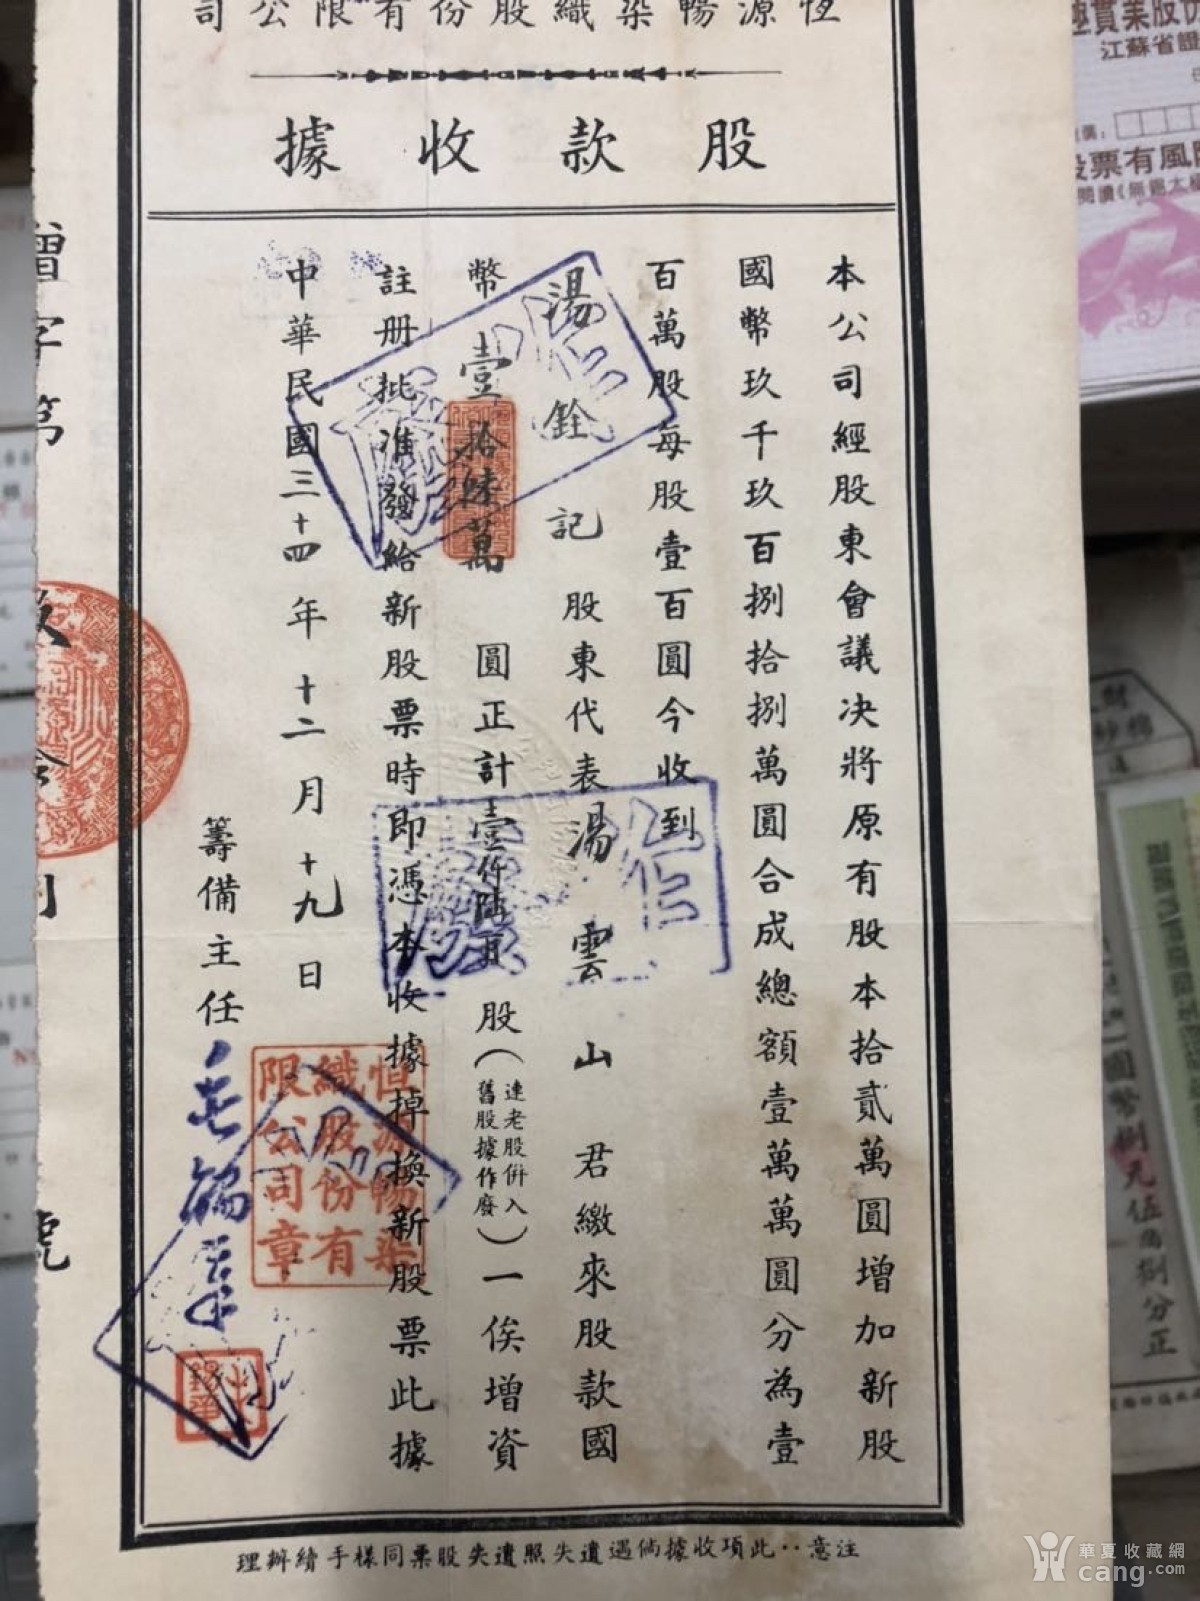 恆源暢染織股份有限公司
股款收據
本公司經股東會議決將原有股本拾貳萬圓增加新股
國幣玖千玖百捌拾捌萬圓合成總額壹萬萬圓分為壹
百萬股每股壹百圓今收到
湯銓記股東代表湯雲山君繳來股款國
幣壹拾陸萬圓正計壹仟陸百股(連老股併入舊股據作廢)一俟增資
註册批准發給新股票時即憑本收據掉換新股票此據
中華民國三十四年十二月十九日
籌備主任
恒源暢染織股份有限公司章
作廢
作廢
增字第
號
注意：此項收據倘遇遺失照遺失股票同樣手續辦理
江蘇省證
股票有風險
國幣捌元伍角捌分正
華夏收藏網
cang.com